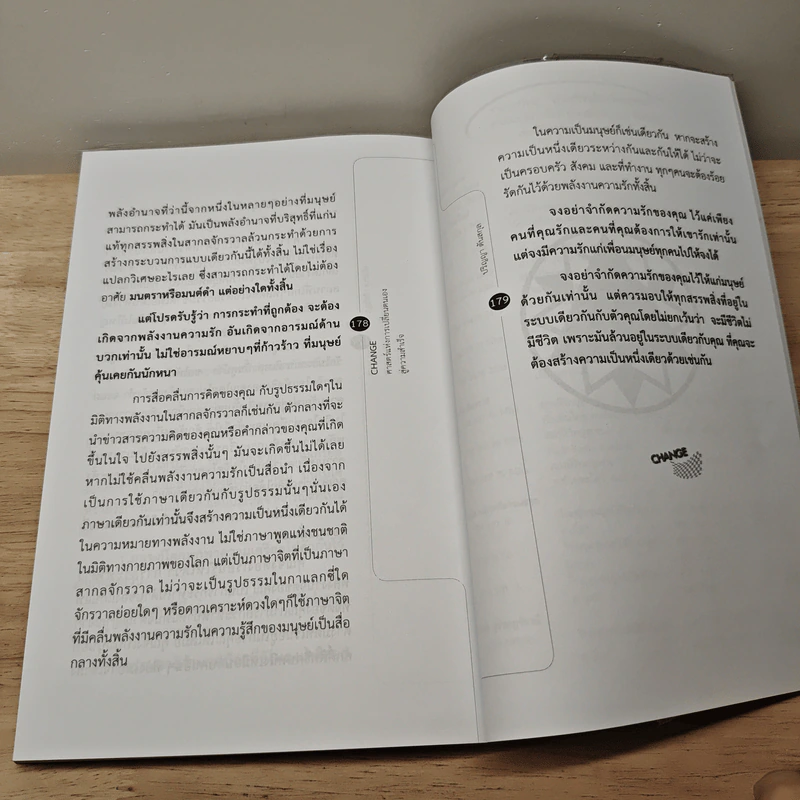 พลังอำนาจที่ว่านี้จากหนึ่งในหลายๆอย่างที่มนุษย์
สามารถกระทำได้ มันเป็นพลังอำนาจที่บริสุทธิ์ที่แก่น
แท้ทุกสรรพสิ่งในสากลจักรวาลล้วนกระทำด้วยการ
สร้างกระบวนการแบบเดียวกันนี้ได้ทั้งสิ้น ไม่ใช่เรื่อง
แปลกวิเศษอะไรเลย ซึ่งสามารถกระทำได้โดยไม่ต้อง
อาศัย มนตราหรือมนต์ดำ แต่อย่างใดทั้งสิ้น
แต่โปรดรับรู้ว่า การกระทำที่ถูกต้อง จะต้อง
เกิดจากพลังงานความรัก อันเกิดจากอารมณ์ด้าน
บวกเท่านั้น ไม่ใช่อารมณ์หยาบๆที่ก้าวร้าว ที่มนุษย์
คุ้นเคยกันนักหนา
การสื่อคลื่นการคิดของคุณ กับรูปธรรมใดๆใน
มิติทางพลังงานในสากลจักรวาลก็เช่นกัน ตัวกลางที่จะ
นำข่าวสารความคิดของคุณหรือคำกล่าวของคุณที่เกิด
ขึ้นในใจ ไปยังสรรพสิ่งนั้นๆ มันจะเกิดขึ้นไม่ได้เลย
หากไม่ใช้คลื่นพลังงานความรักเป็นสื่อนำ เนื่องจาก
เป็นการใช้ภาษาเดียวกันกับรูปธรรมนั้นๆนั่นเอง
ภาษาเดียวกันเท่านั้นจึงสร้างความเป็นหนึ่งเดียวกันได้
ในความหมายทางพลังงาน ไม่ใช่ภาษาพูดแห่งชนชาติ
ในมิติทางกายภาพของโลก แต่เป็นภาษาจิตที่เป็นภาษา
สากลจักรวาล ไม่ว่าจะเป็นรูปธรรมในกาแลกซี่ใด
จักรวาลย่อยใดๆ หรือดาวเคราะห์ดวงใดๆก็ใช้ภาษาจิต
ที่มีคลื่นพลังงานความรักในความรู้สึกของมนุษย์เป็นสื่อ
กลางทั้งสิ้น
178
CHANGE
ศาสตร์แห่งการเปลี่ยนตนเอง
สู่ความสำเร็จ
ในความเป็นมนุษย์ก็เช่นเดียวกัน หากจะสร้าง
ความเป็นหนึ่งเดียวระหว่างกันและกันให้ได้ ไม่ว่าจะ
เป็นครอบครัว สังคม และที่ทำงาน ทุกๆคนจะต้องร้อย
รัดกันไว้ด้วยพลังงานความรักทั้งสิ้น
จงอย่าจำกัดความรักของคุณ ไว้แค่เพียง
คนที่คุณรักและคนที่คุณต้องการให้เขารักเท่านั้น
แต่จงมีความรักแก่เพื่อนมนุษย์ทุกคนไปให้จงได้
จงอย่าจำกัดความรักของคุณไว้ให้แก่มนุษย์
ด้วยกันเท่านั้น แต่ควรมอบให้ทุกสรรพสิ่งที่อยู่ใน
ระบบเดียวกันกับตัวคุณโดยไม่ยกเว้นว่า จะมีชีวิตไม่
มีชีวิต เพราะมันล้วนอยู่ในระบบเดียวกับคุณ ที่คุณจะ
ต้องสร้างความเป็นหนึ่งเดียวด้วยเช่นกัน
ปริญญา ตันสกุล
179
CHANGE